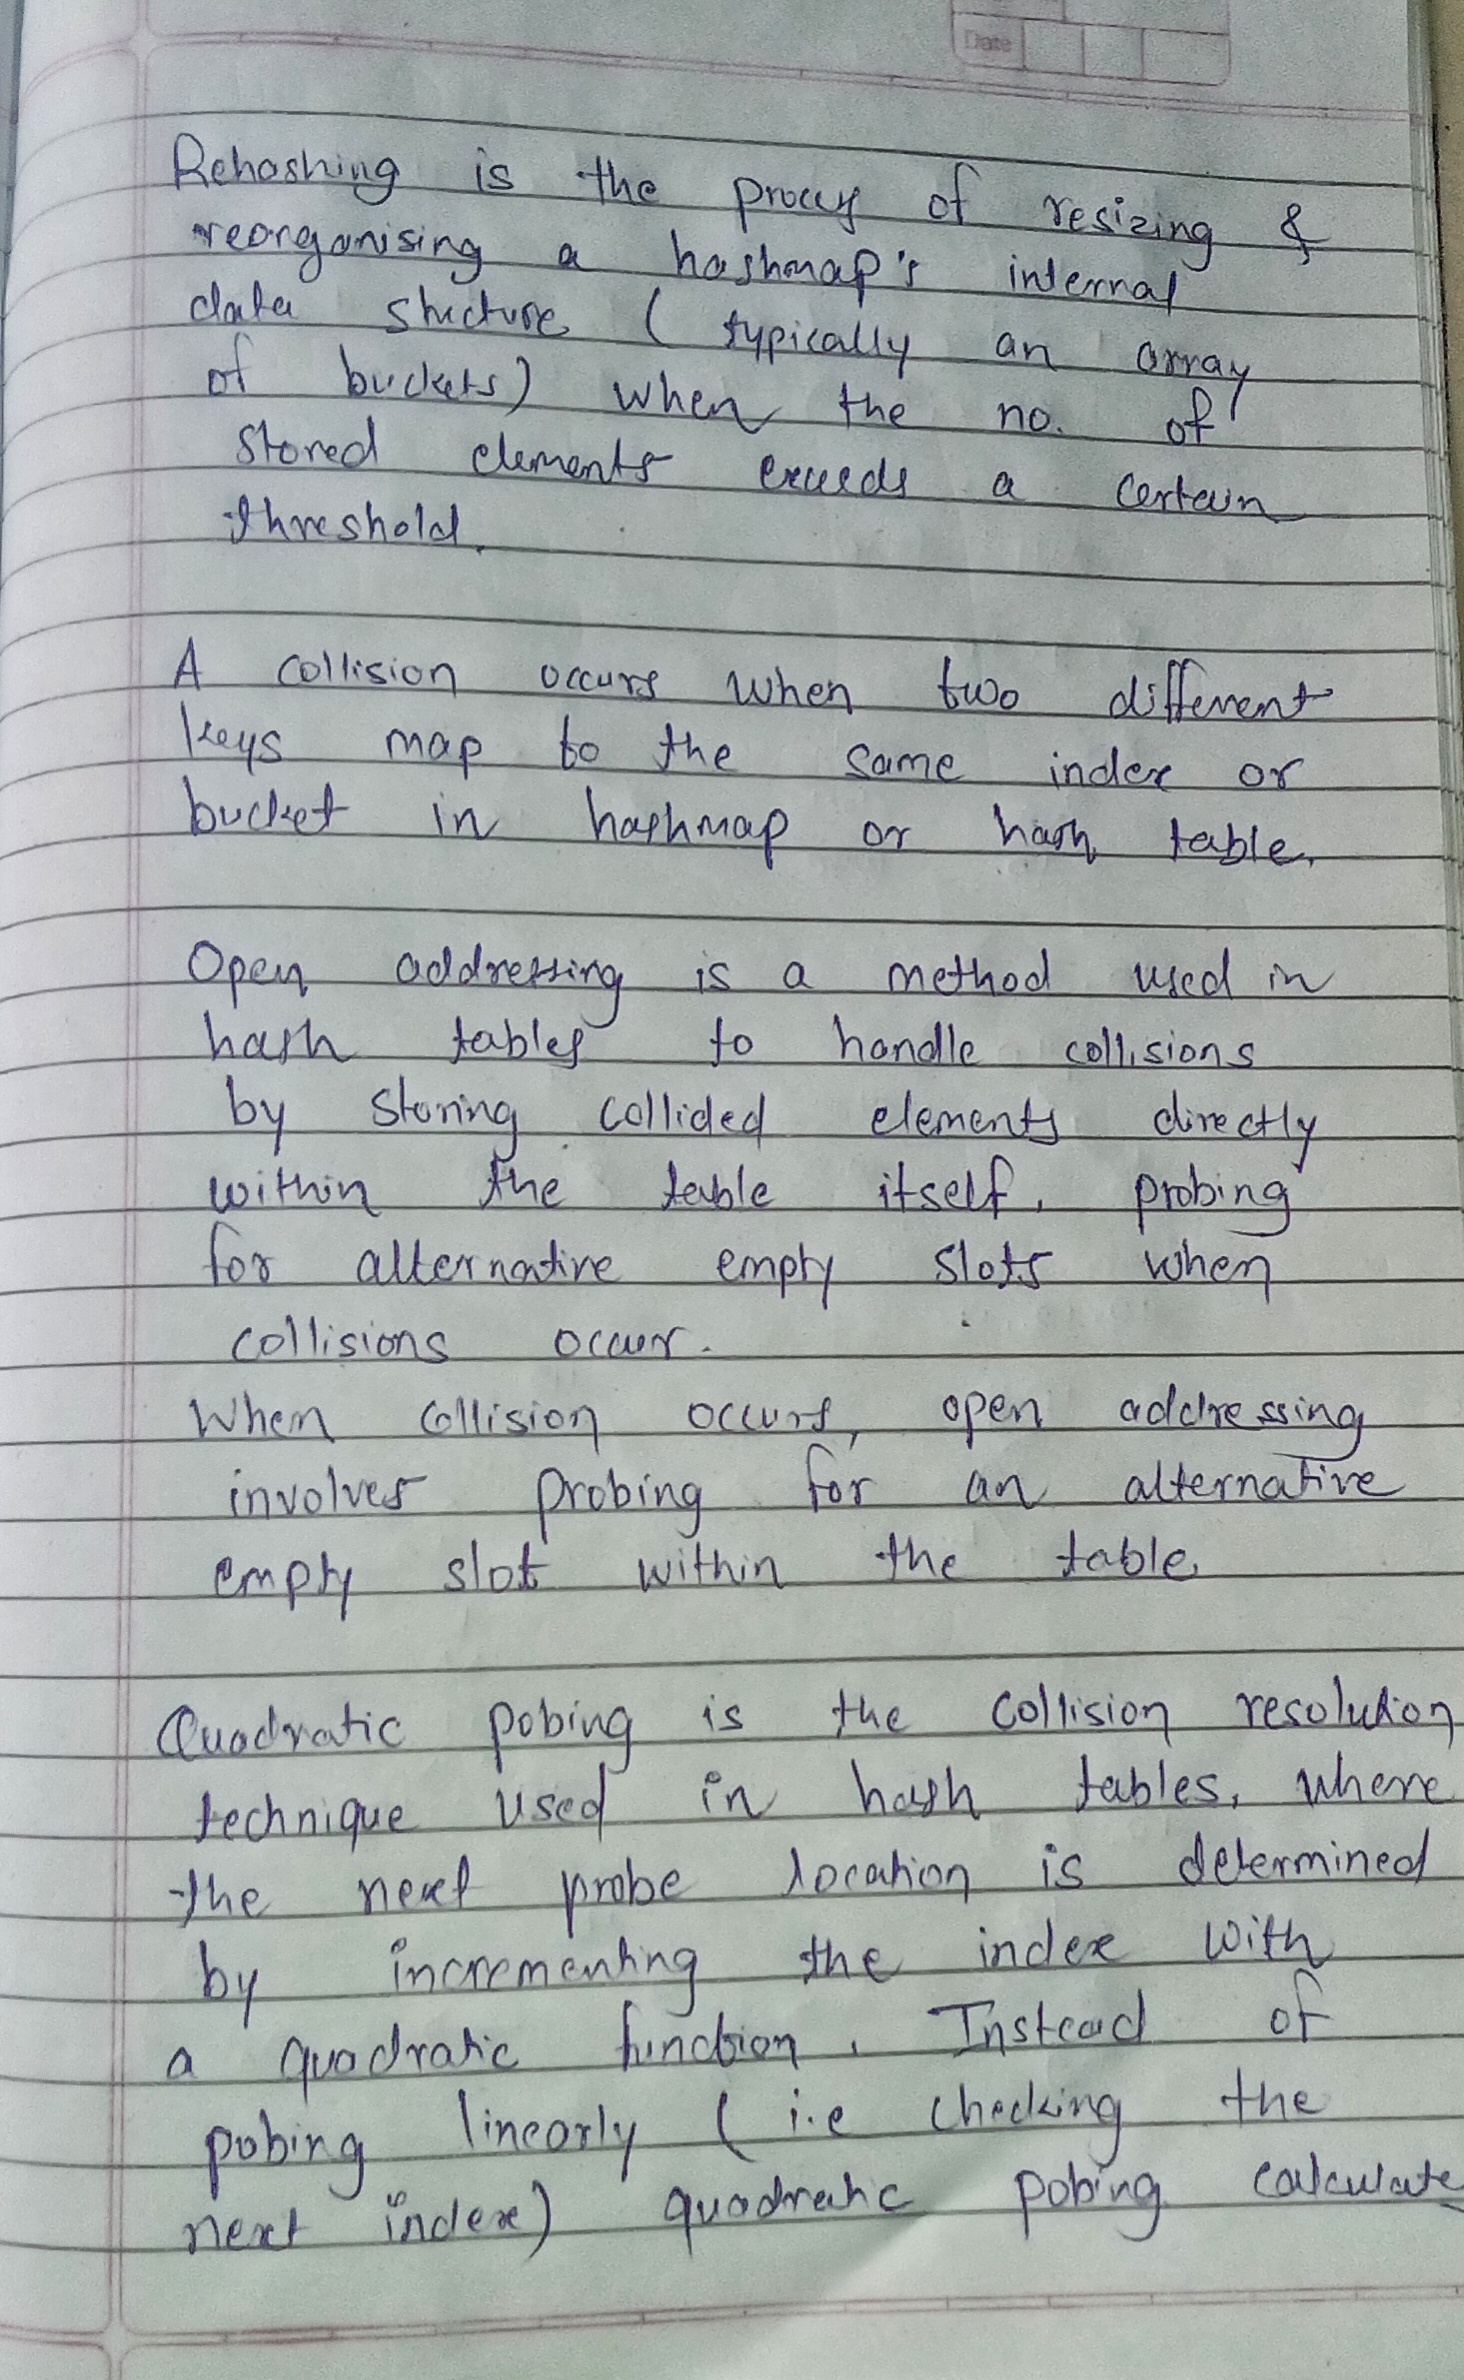 Date
Rehashing is the process of resizing &
reorganising a hashmap's internal
data structure ( typically an array
of buckets) when the no. of
stored elements exceeds a certain
threshold.
A collision occurs when two different
keys map to the same index or
bucket in hashmap or hash table.
Open addressing is a method used in
hash tables to handle collisions
by storing collided elements directly
within the table itself, probing
for alternative empty slots when
collisions occur.
When collision occurs, open addressing
involves probing for an alternative
empty slot within the table
Quadratic pobing is the collision resolution
technique used in hash tables, where
the next probe location is determined
by incrementing the index with
a quadratic function. Instead of
pobing linearly ( i.e checking the
next index) quadratic pobing calculate